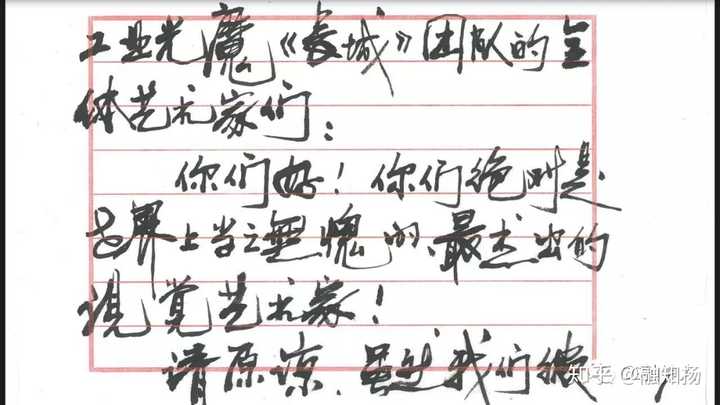 工业光魔《长城》团队的全
体艺术家们：
你们好！你们绝对是
世界上当之無愧的、最杰出的
視覚艺术家！
请原谅，虽然我们很
知乎 @融知杨